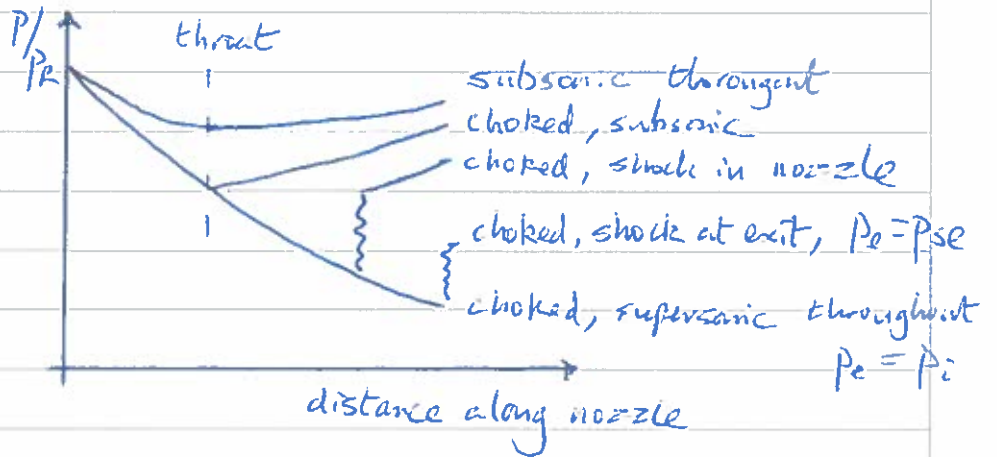 P/
PR
throat
subsonic througout
choked, subsonic
choked, shock in nozzle
choked, shock at exit, Pe = Pse
choked, supersonic throughout
Pe = Pi
distance along nozzle